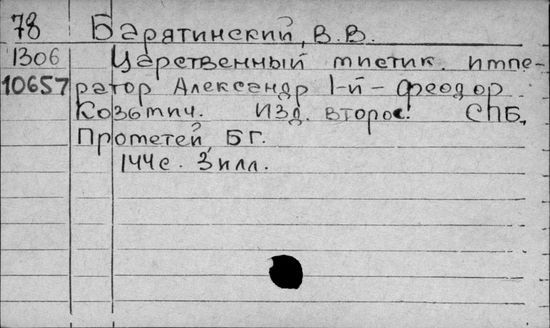 78 Барятинский, В.В.
1306 Царственный мистик. импе-
10657 ратор Александр I-й - Феодор
Козьмич. Изд. второе. СПБ,
Прометей, Б Г.
144 с. 3 илл.